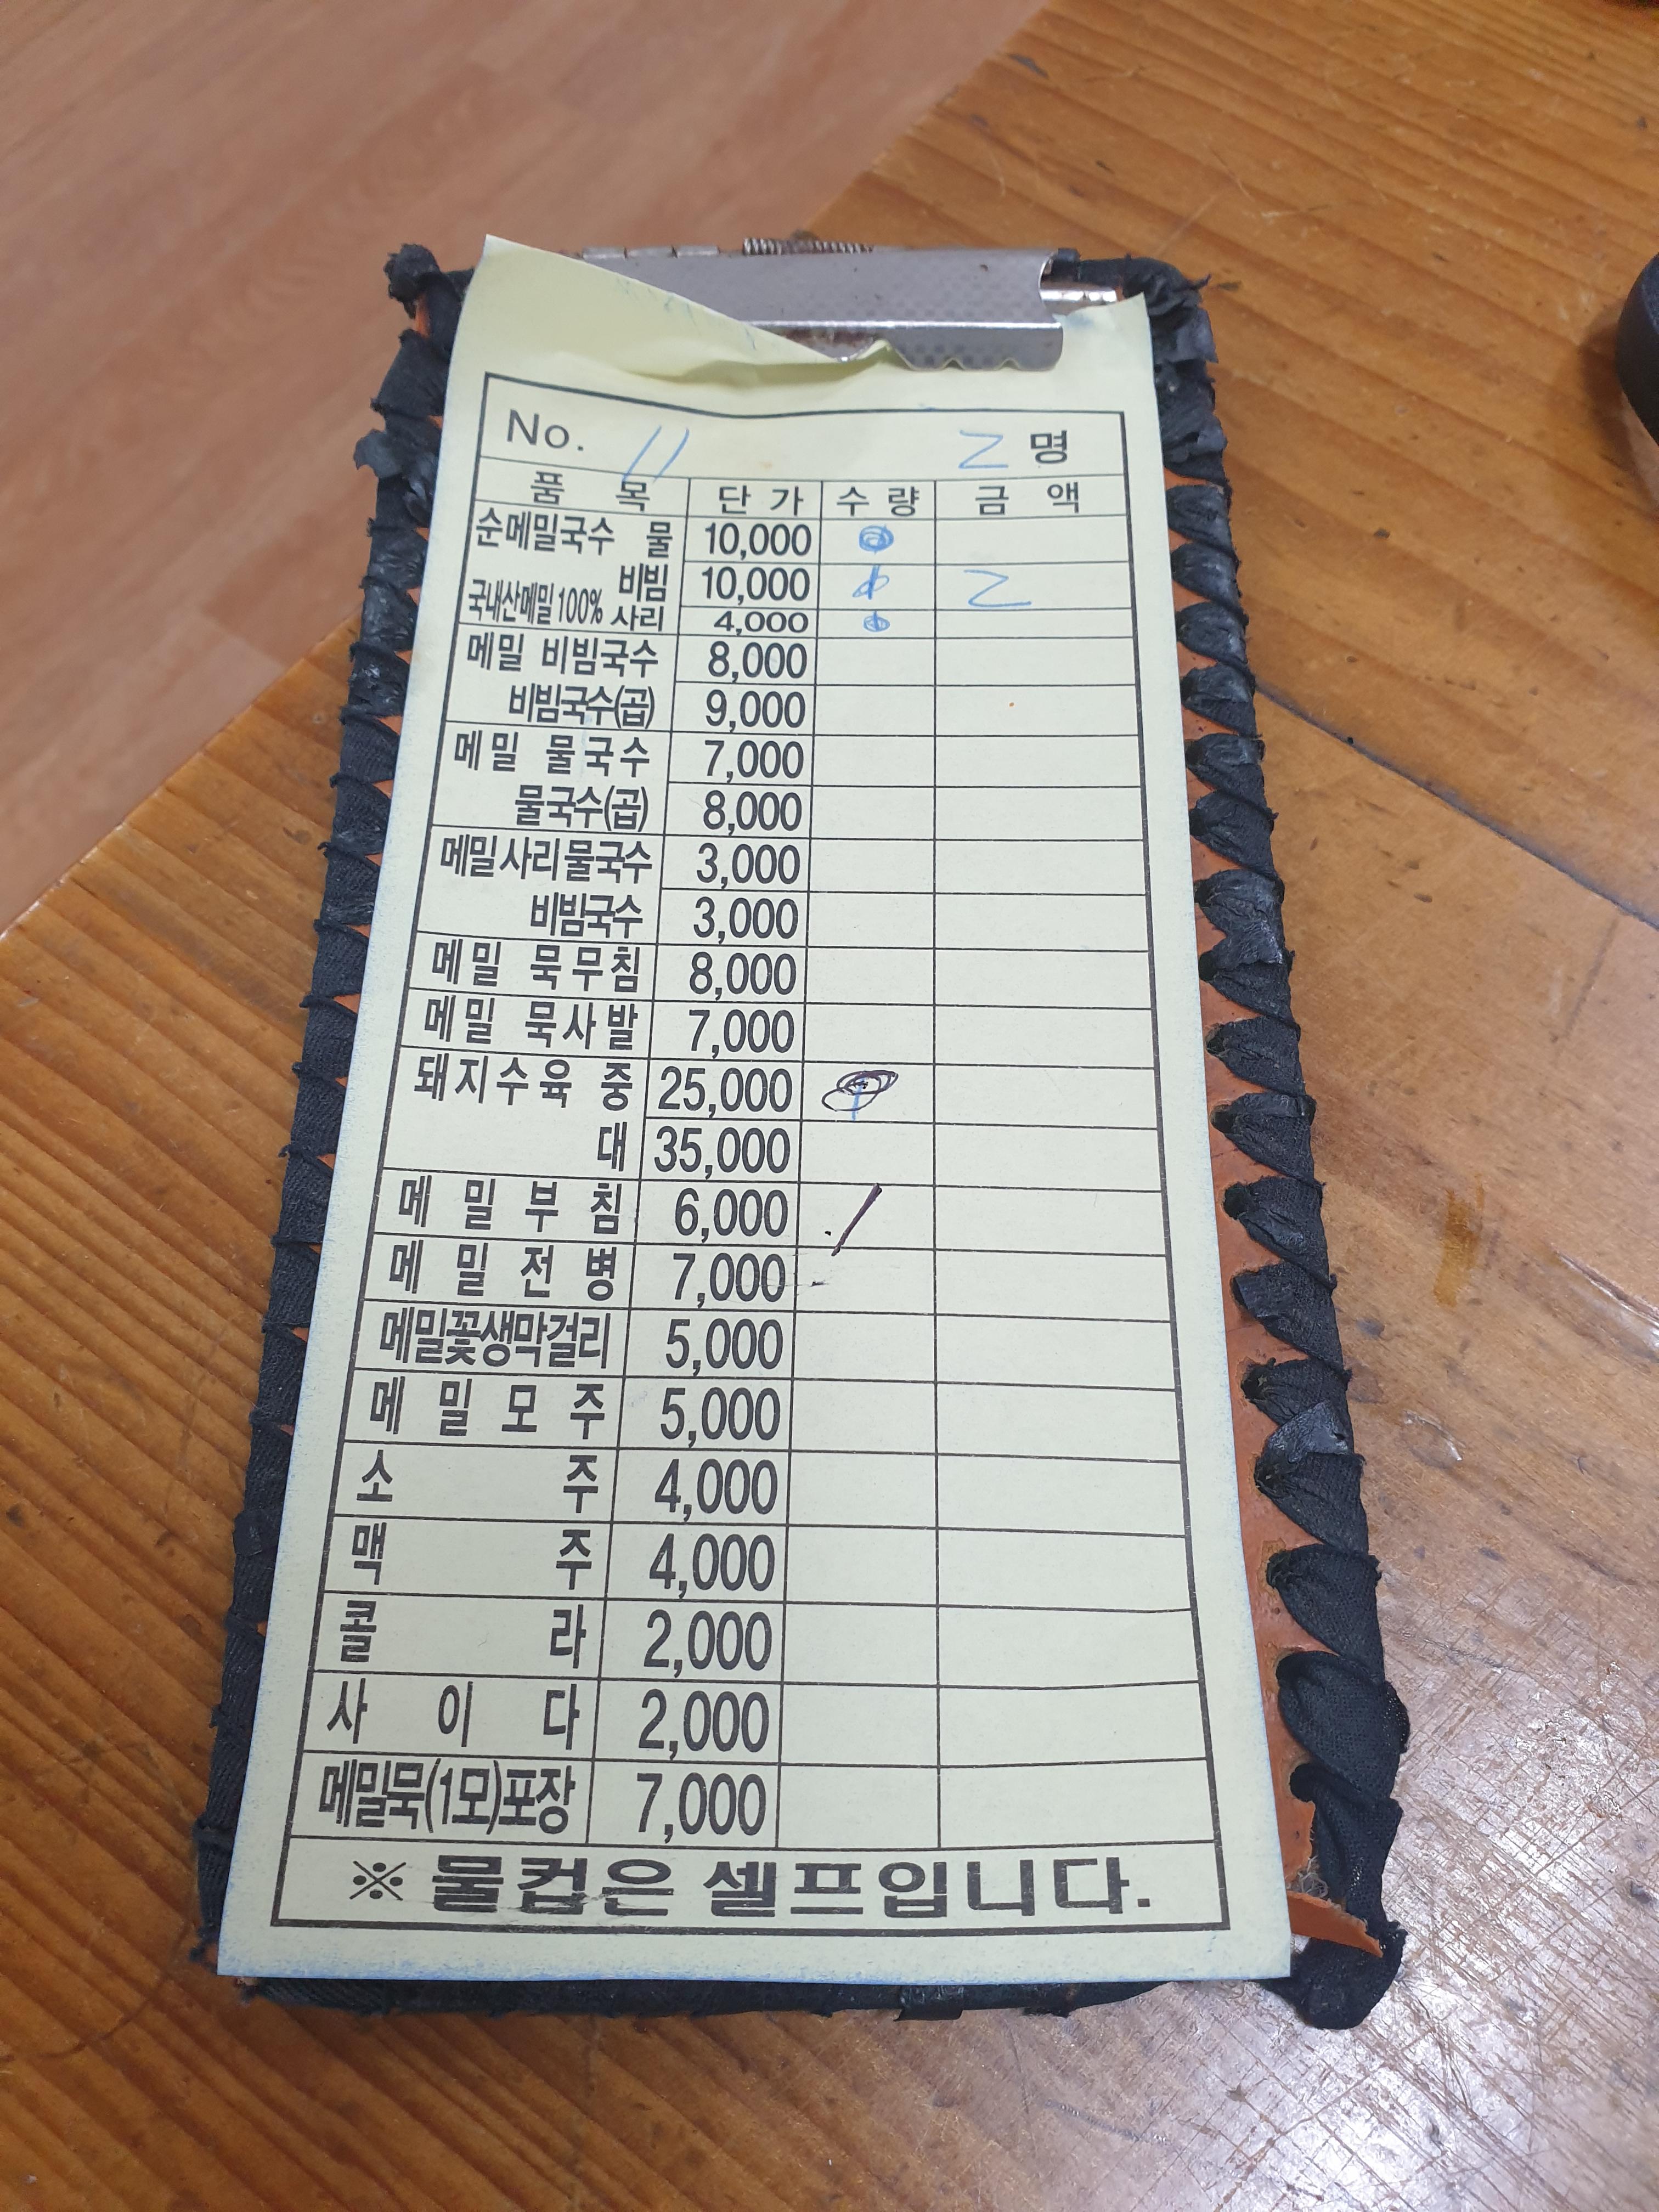 No. 11 2 명
품 목 단 가 수 량 금 액
순메밀국수 물 10,000
비빔 10,000 2
국내산메밀 100% 사리 4,000
메밀 비빔국수 8,000
비빔국수(곱) 9,000
메밀 물국수 7,000
물국수(곱) 8,000
메밀사리물국수 3,000
비빔국수 3,000
메밀 묵무침 8,000
메밀 묵사발 7,000
돼지수육 중 25,000
대 35,000
메밀부침 6,000 /
메밀전병 7,000
메밀꽃생막걸리 5,000
메밀모주 5,000
소주 4,000
맥주 4,000
콜라 2,000
사이다 2,000
메밀묵(1모)포장 7,000
※ 물컵은 셀프입니다.